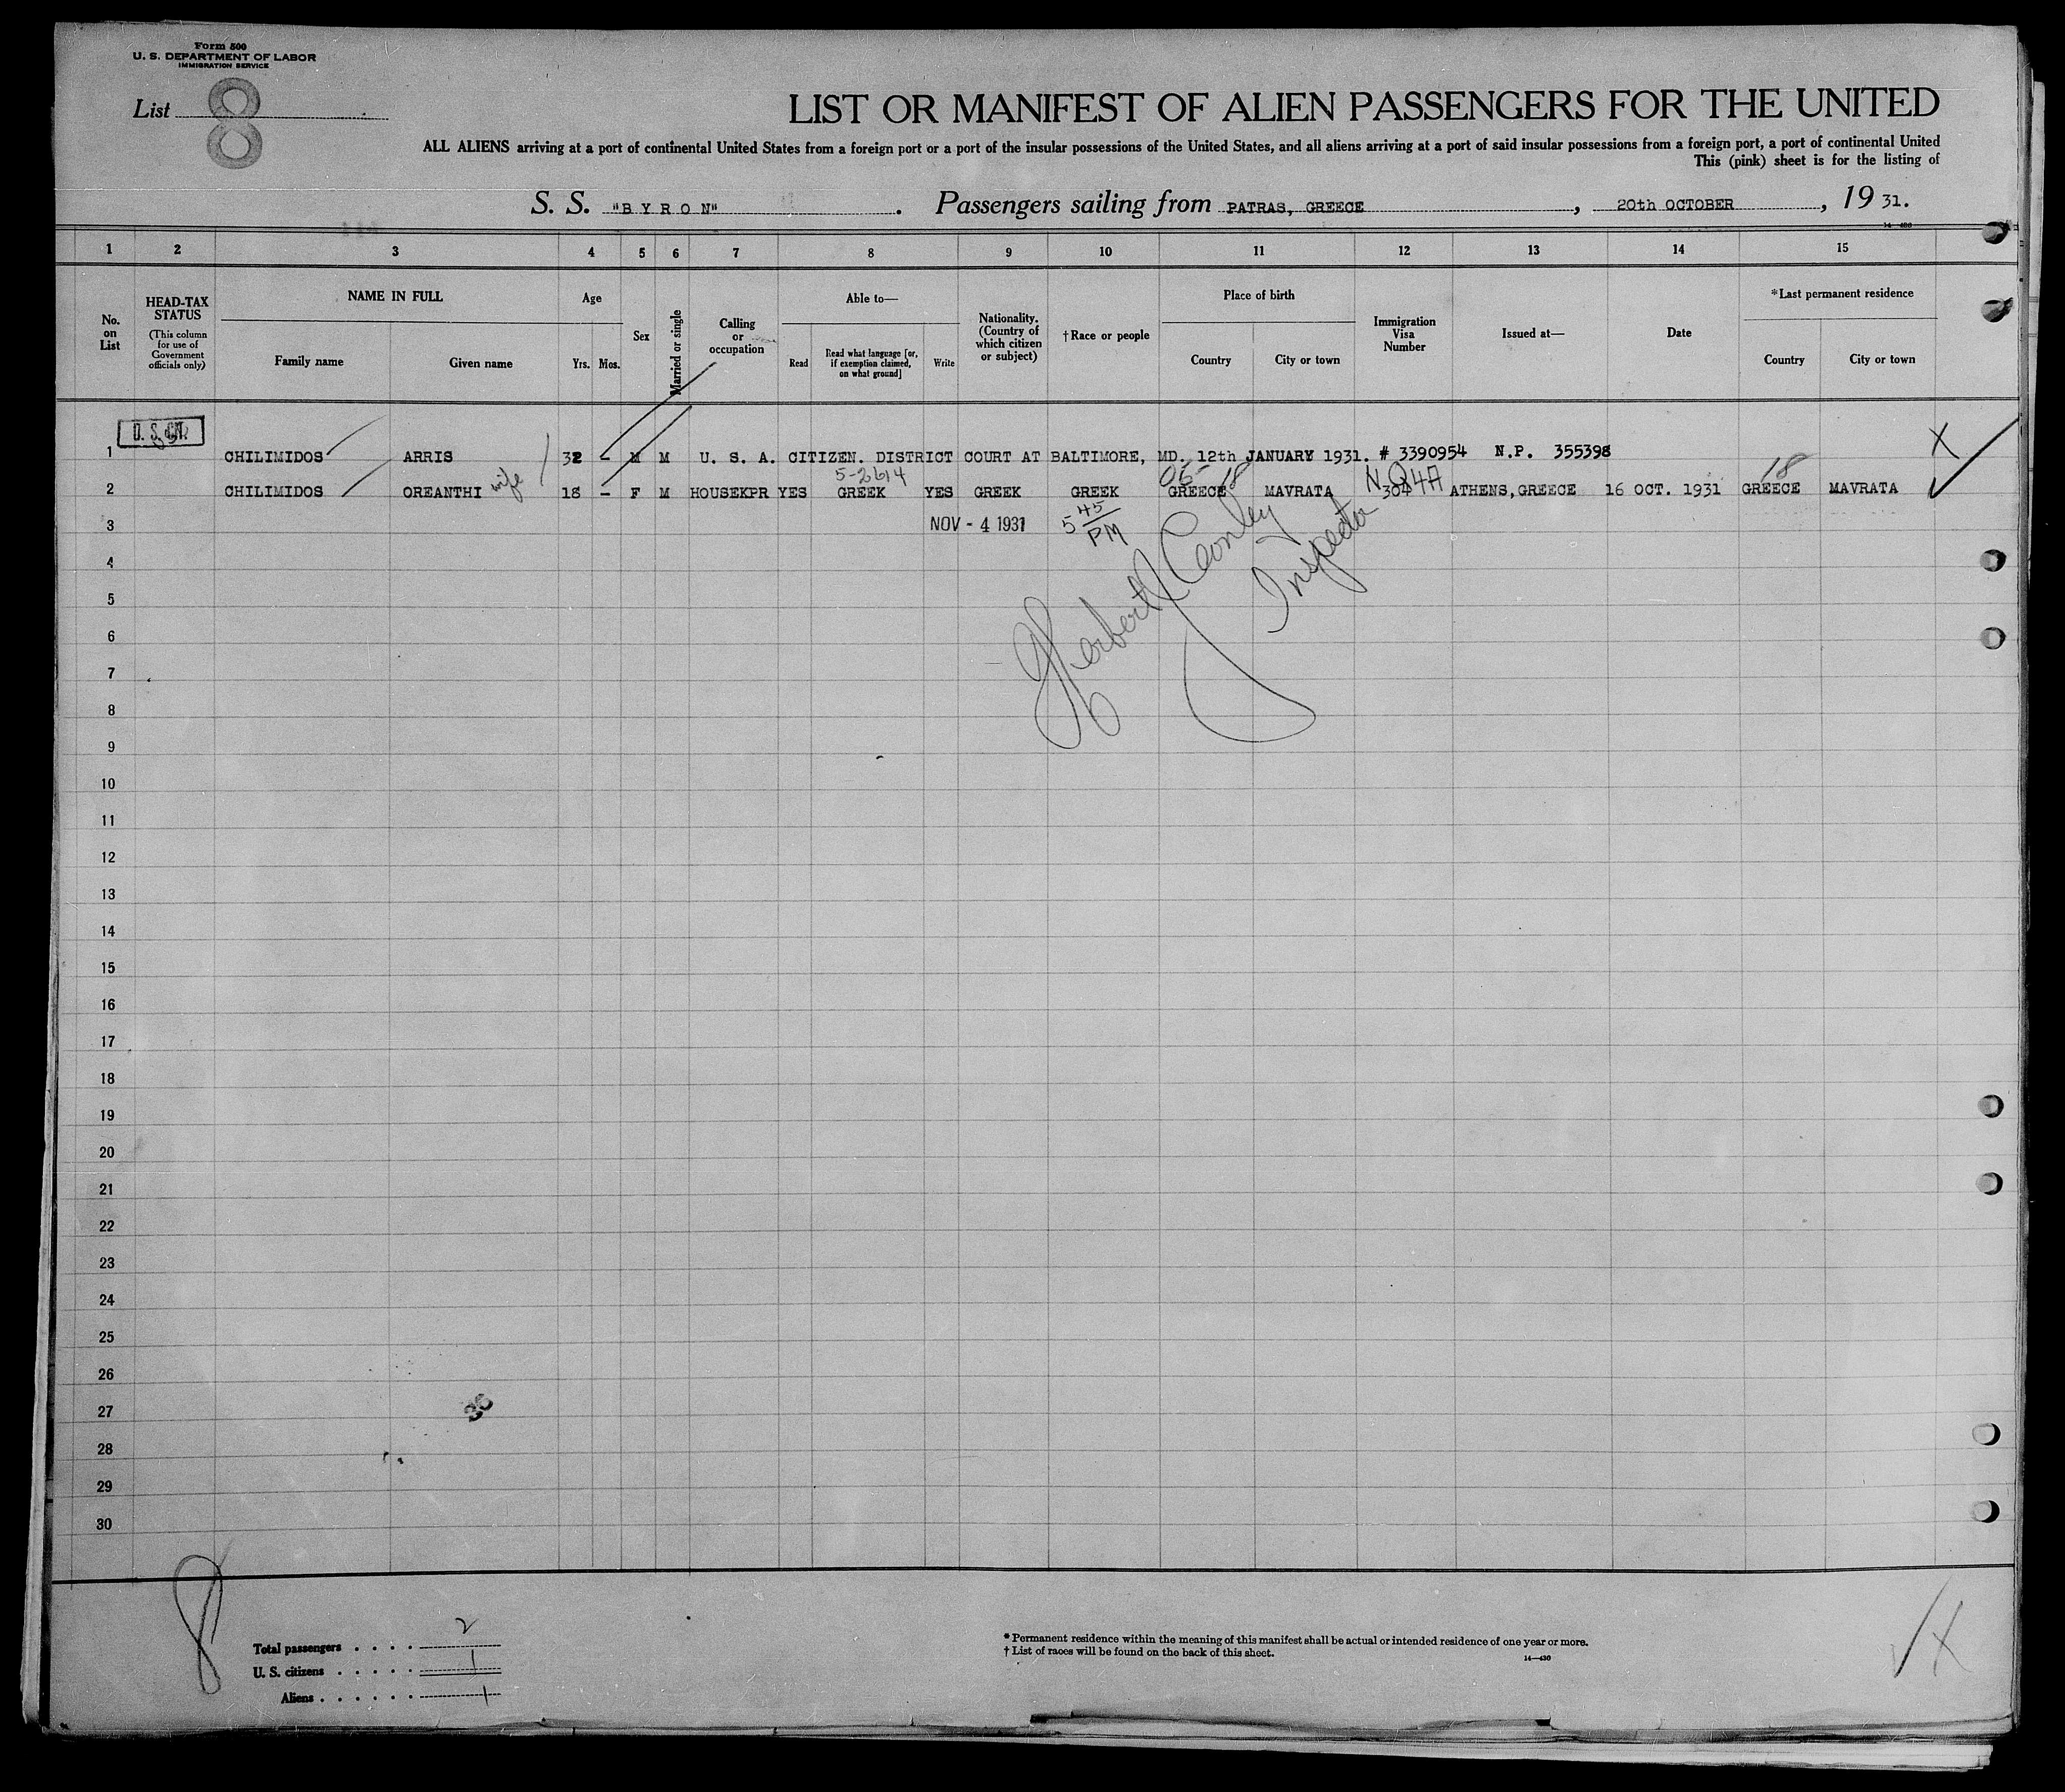 Form 500
U. S. DEPARTMENT OF LABOR
IMMIGRATION SERVICE
List 8
LIST OR MANIFEST OF ALIEN PASSENGERS FOR THE UNITED
ALL ALIENS arriving at a port of continental United States from a foreign port or a port of the insular possessions of the United States, and all aliens arriving at a port of said insular possessions from a foreign port, a port of continental United
This (pink) sheet is for the listing of
S. S. "BYRON". Passengers sailing from PATRAS, GREECE, 20th OCTOBER, 1931.
1 2 3 4 5 6 7 8 9 10 11 12 13 14 15
No. on List
HEAD-TAX STATUS
(This column for use of Government officials only)
NAME IN FULL
Family name Given name
Age
Yrs. Mos.
Sex
Married or single
Calling or occupation
Able to—
Read
Read what language [or, if exemption claimed, on what ground]
Write
Nationality. (Country of which citizen or subject)
†Race or people
Place of birth
Country City or town
Immigration Visa Number
Issued at—
Date
*Last permanent residence
Country City or town
1 CHILIMIDOS ARRIS 32 - M M U. S. A. CITIZEN. DISTRICT COURT AT BALTIMORE, MD. 12th JANUARY 1931. # 3390954 N.P. 355398 X
5-2614 18
2 CHILIMIDOS OREANTHI wife 18 - F M HOUSEKPR YES GREEK YES GREEK GREEK GREECE MAVRATA 304 ATHENS, GREECE 16 OCT. 1931 GREECE MAVRATA
3 NOV - 4 1931 5 45 PM
Herbert J Conley
Inspector
4
5
6
7
8
9
10
11
12
13
14
15
16
17
18
19
20
21
22
23
24
25
26
27
28
29
30
8
Total passengers . . . . 2
U. S. citizens . . . . . 1
Aliens . . . . . . 1
* Permanent residence within the meaning of this manifest shall be actual or intended residence of one year or more.
† List of races will be found on the back of this sheet.
14—430
X